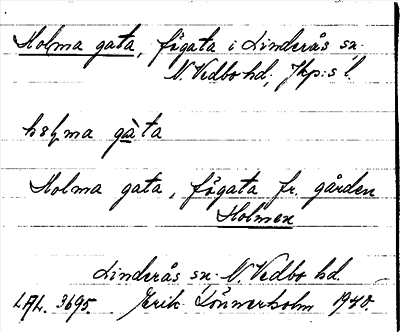 Holma gata, fägata i Linderås sn.
N. Vedbo hd, Jkp:s l.
Holma gata, fägata fr. gården
Holmen
Linderås sn. N. Vedbo hd.
LAL. 3695. Erik Lönnerholm 1940.